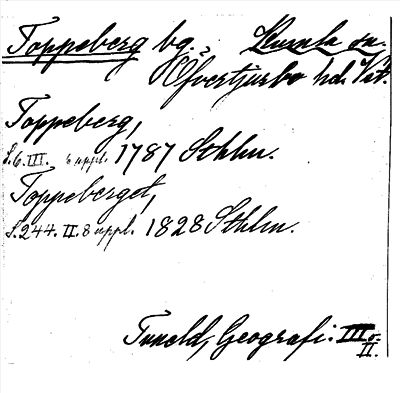 Toppeberg bg. Kumla sn.
Öfvertjurbo hd. Vstm.
Toppeberg,
S. 6. III. 6 uppl. 1787 Sthlm.
Toppeberget,
S. 244. II. 8 uppl. 1828 Sthlm.
Tuneld, Geografi. III o.
II.